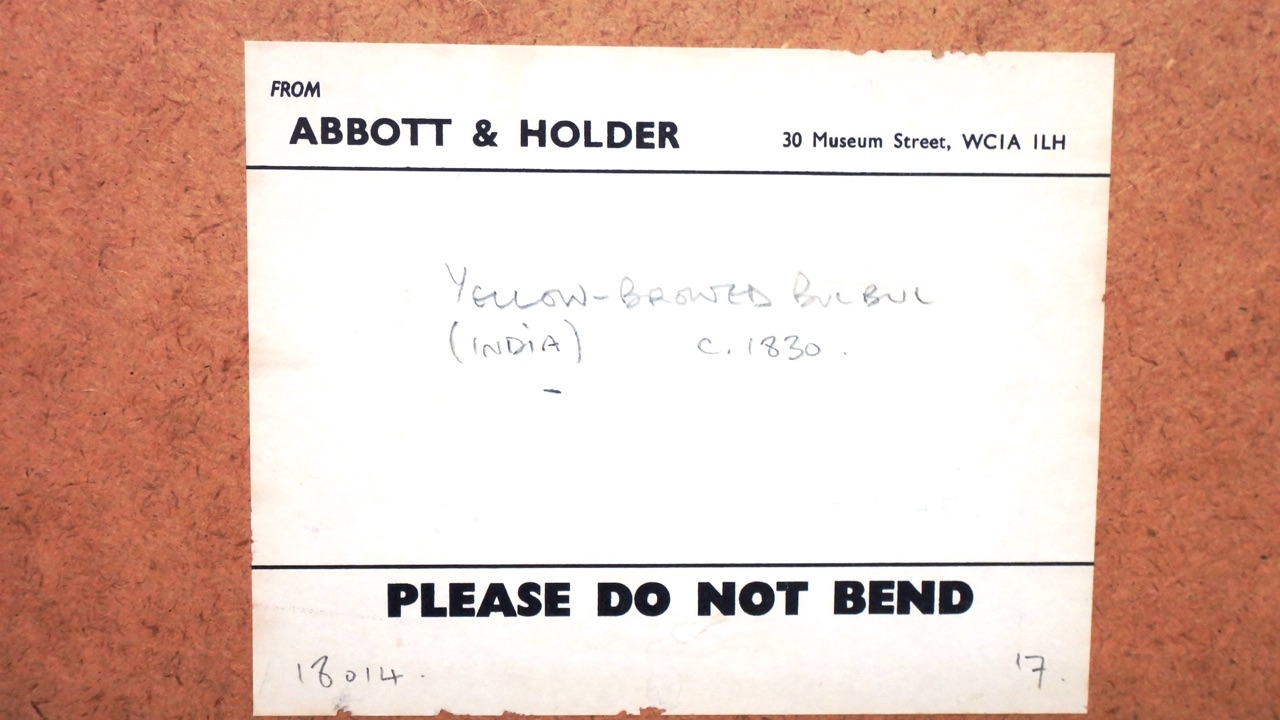 FROM
ABBOTT & HOLDER 30 Museum Street, WC1A 1LH
YELLOW-BROWED BULBUL
(INDIA) C. 1830.
-
PLEASE DO NOT BEND
18014. 17.